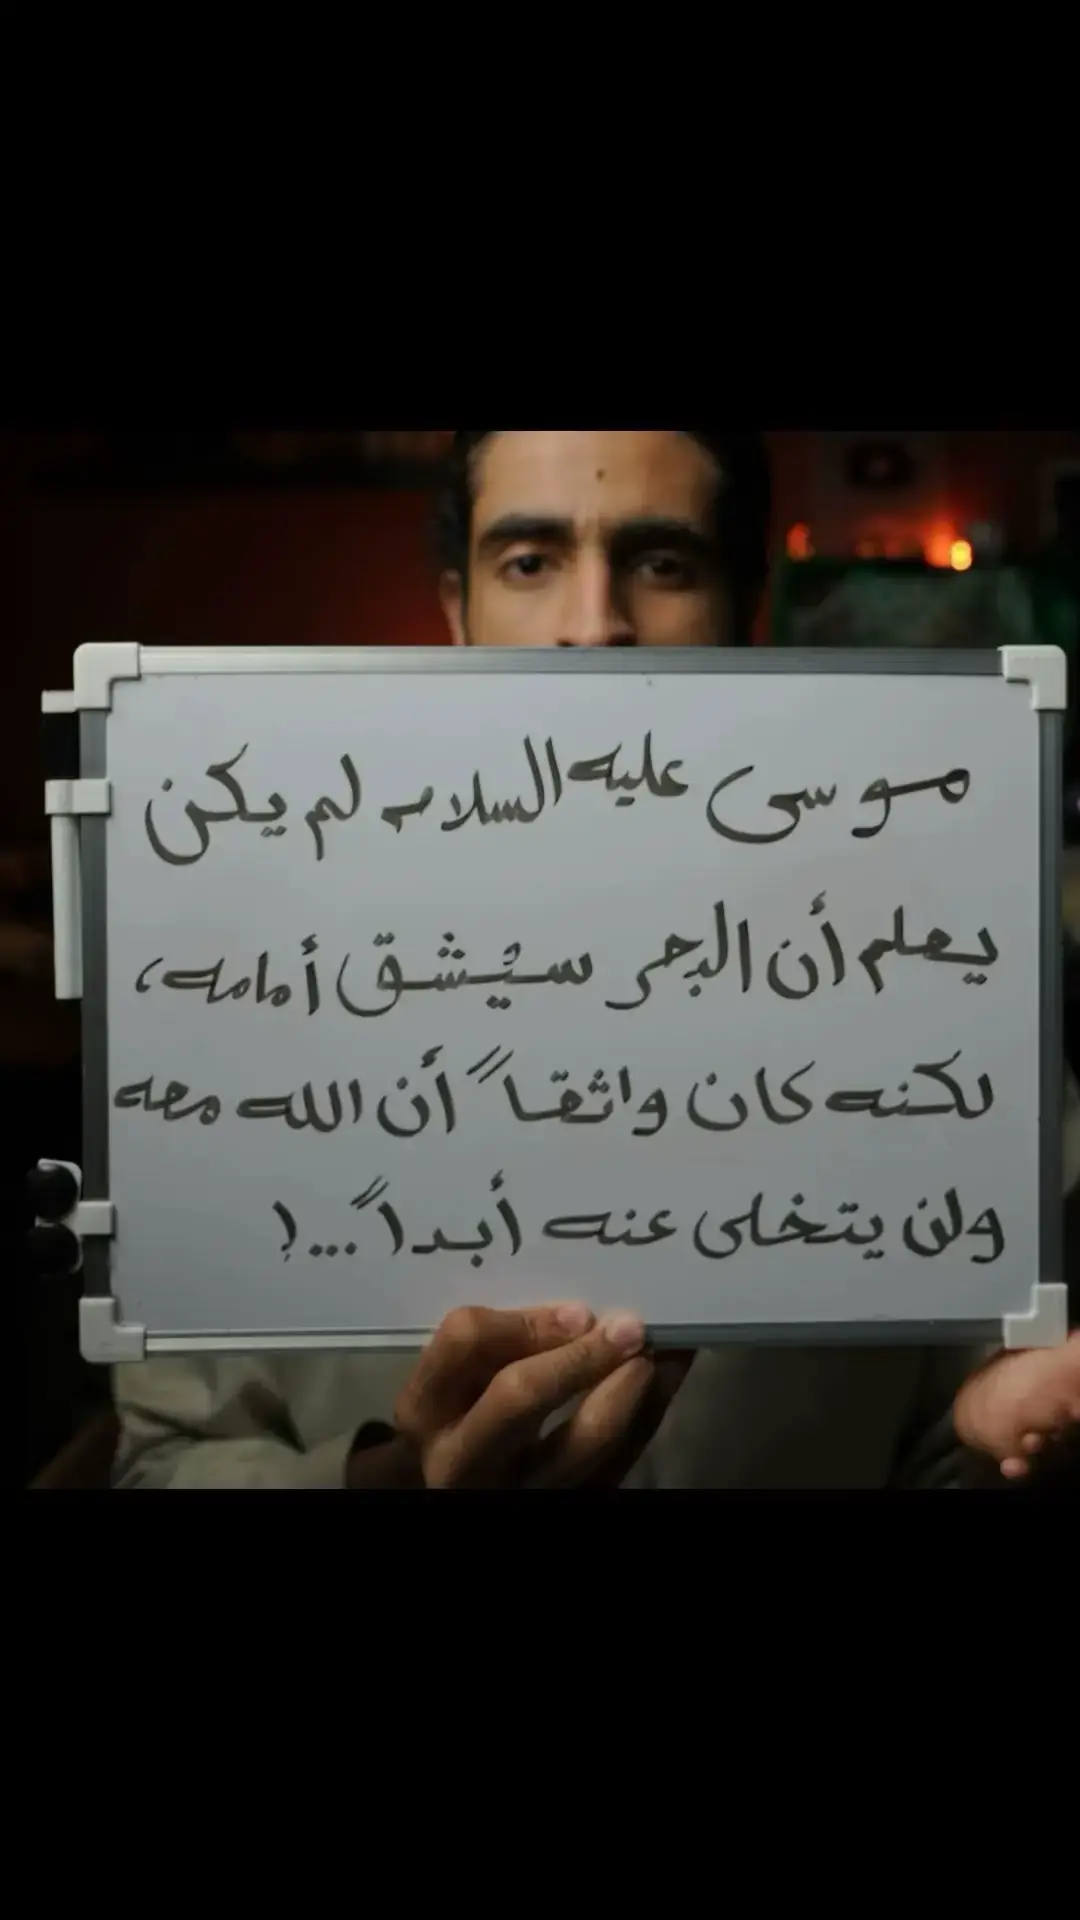 موسى عليه السلام لم يكن
يعلم أن البحر سيُشق أمامه،
لكنه كان واثقاً أن الله معه
ولن يتخلى عنه أبداً...!